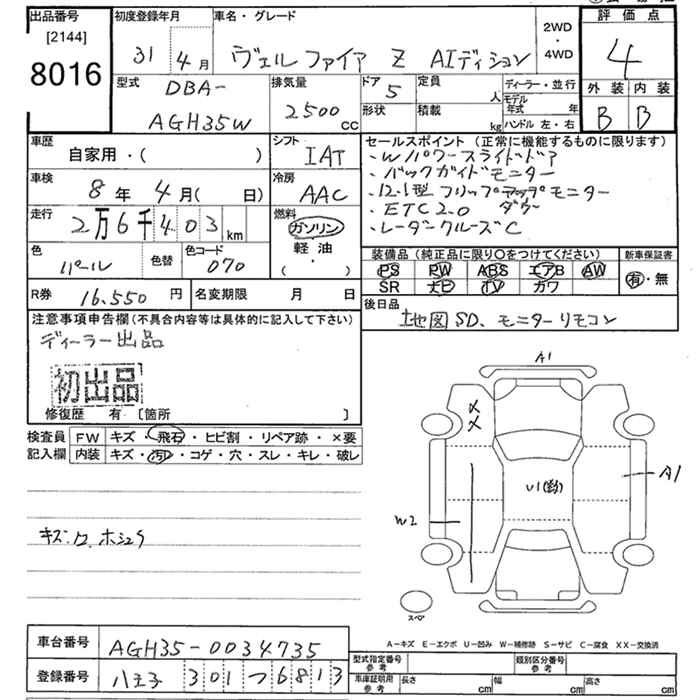 出品番号
[2144]
8016
初度登録年月
31年 4月
車名・グレード
ヴェルファイア Z Aエディション
2WD
・
4WD
評価点
4
外装 内装
B B
型式
DBA-
AGH35W
排気量
2500 cc
ドア
5
形状
定員
人
積載
kg
ディーラー・並行
モデル年式 年
ハンドル 左・右
車歴
自家用・( )
シフト
IAT
車検
8年 4月( 日)
冷房
AAC
走行
2万6千403 km
燃料
ガソリン
軽油
( )
色
パール
色替
色コード
070
R券 16,550 円
名変期限 月 日
セールスポイント(正常に機能するものに限ります)
・Wパワースライドドア
・バックガイドモニター
・12.1型フリップダウンモニター
・ETC2.0
・レーダークルーズC
装備品(純正品に限り○をつけてください)
PS PW ABS エアB AW
SR ナビ TV カワ
新車保証書
有・無
後日品
地図SD、モニターリモコン
注意事項申告欄(不具合内容等は具体的に記入して下さい)
ディーラー出品
初出品
修復歴 有 [箇所 ]
検査員 FW キズ・飛石・ヒビ割・リペア跡・×要
記入欄 内装 キズ・汚レ・コゲ・穴・スレ・キレ・破レ
キズ
A1
U1
A1
W2
スペア
A-キズ E-エクボ U-凹み W-補修跡 S-サビ C-腐食 XX-交換済
車台番号 AGH35-0034735
登録番号 八王子 301つ6813
型式指定番号
参考
類別区分番号
参考
車庫証明用
参考
長さ cm 幅 cm 高さ cm